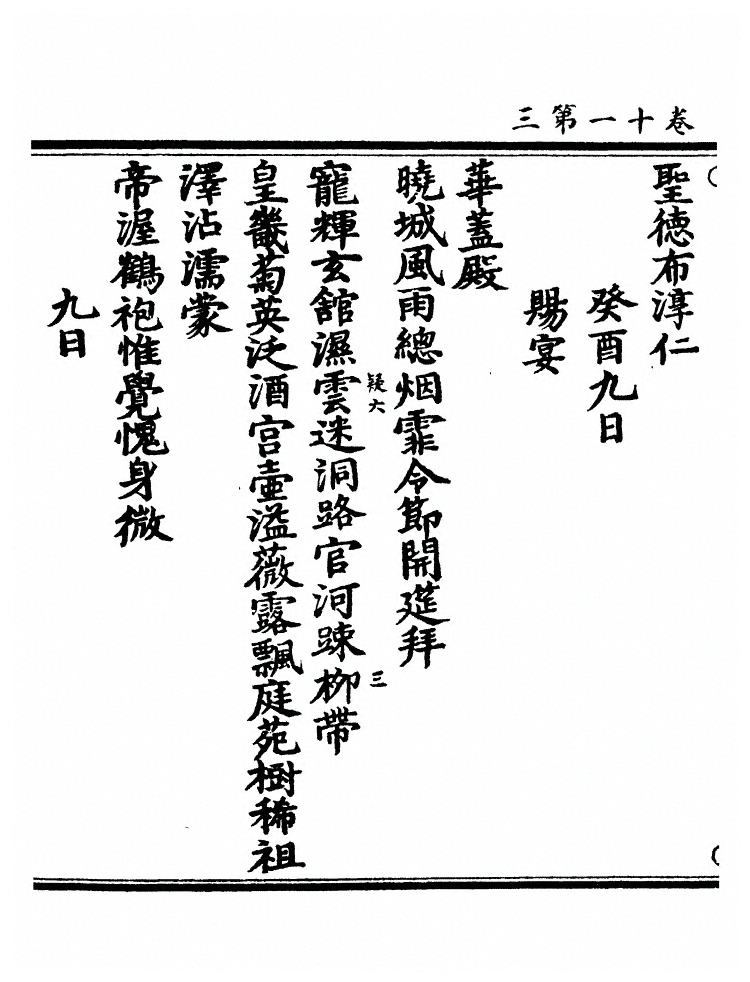 卷十一第三
聖徳布淳仁
癸酉九日
賜宴
華蓋殿
曉城風雨總烟霏令節開筵拜
疑六
三
寵輝玄舘濕雲迷洞路官河踈柳帶
皇畿菊英泛酒宫壷溢薇露飄庭苑樹稀祖
澤沾濡蒙
帝渥鶴袍惟覺愧身微
九日